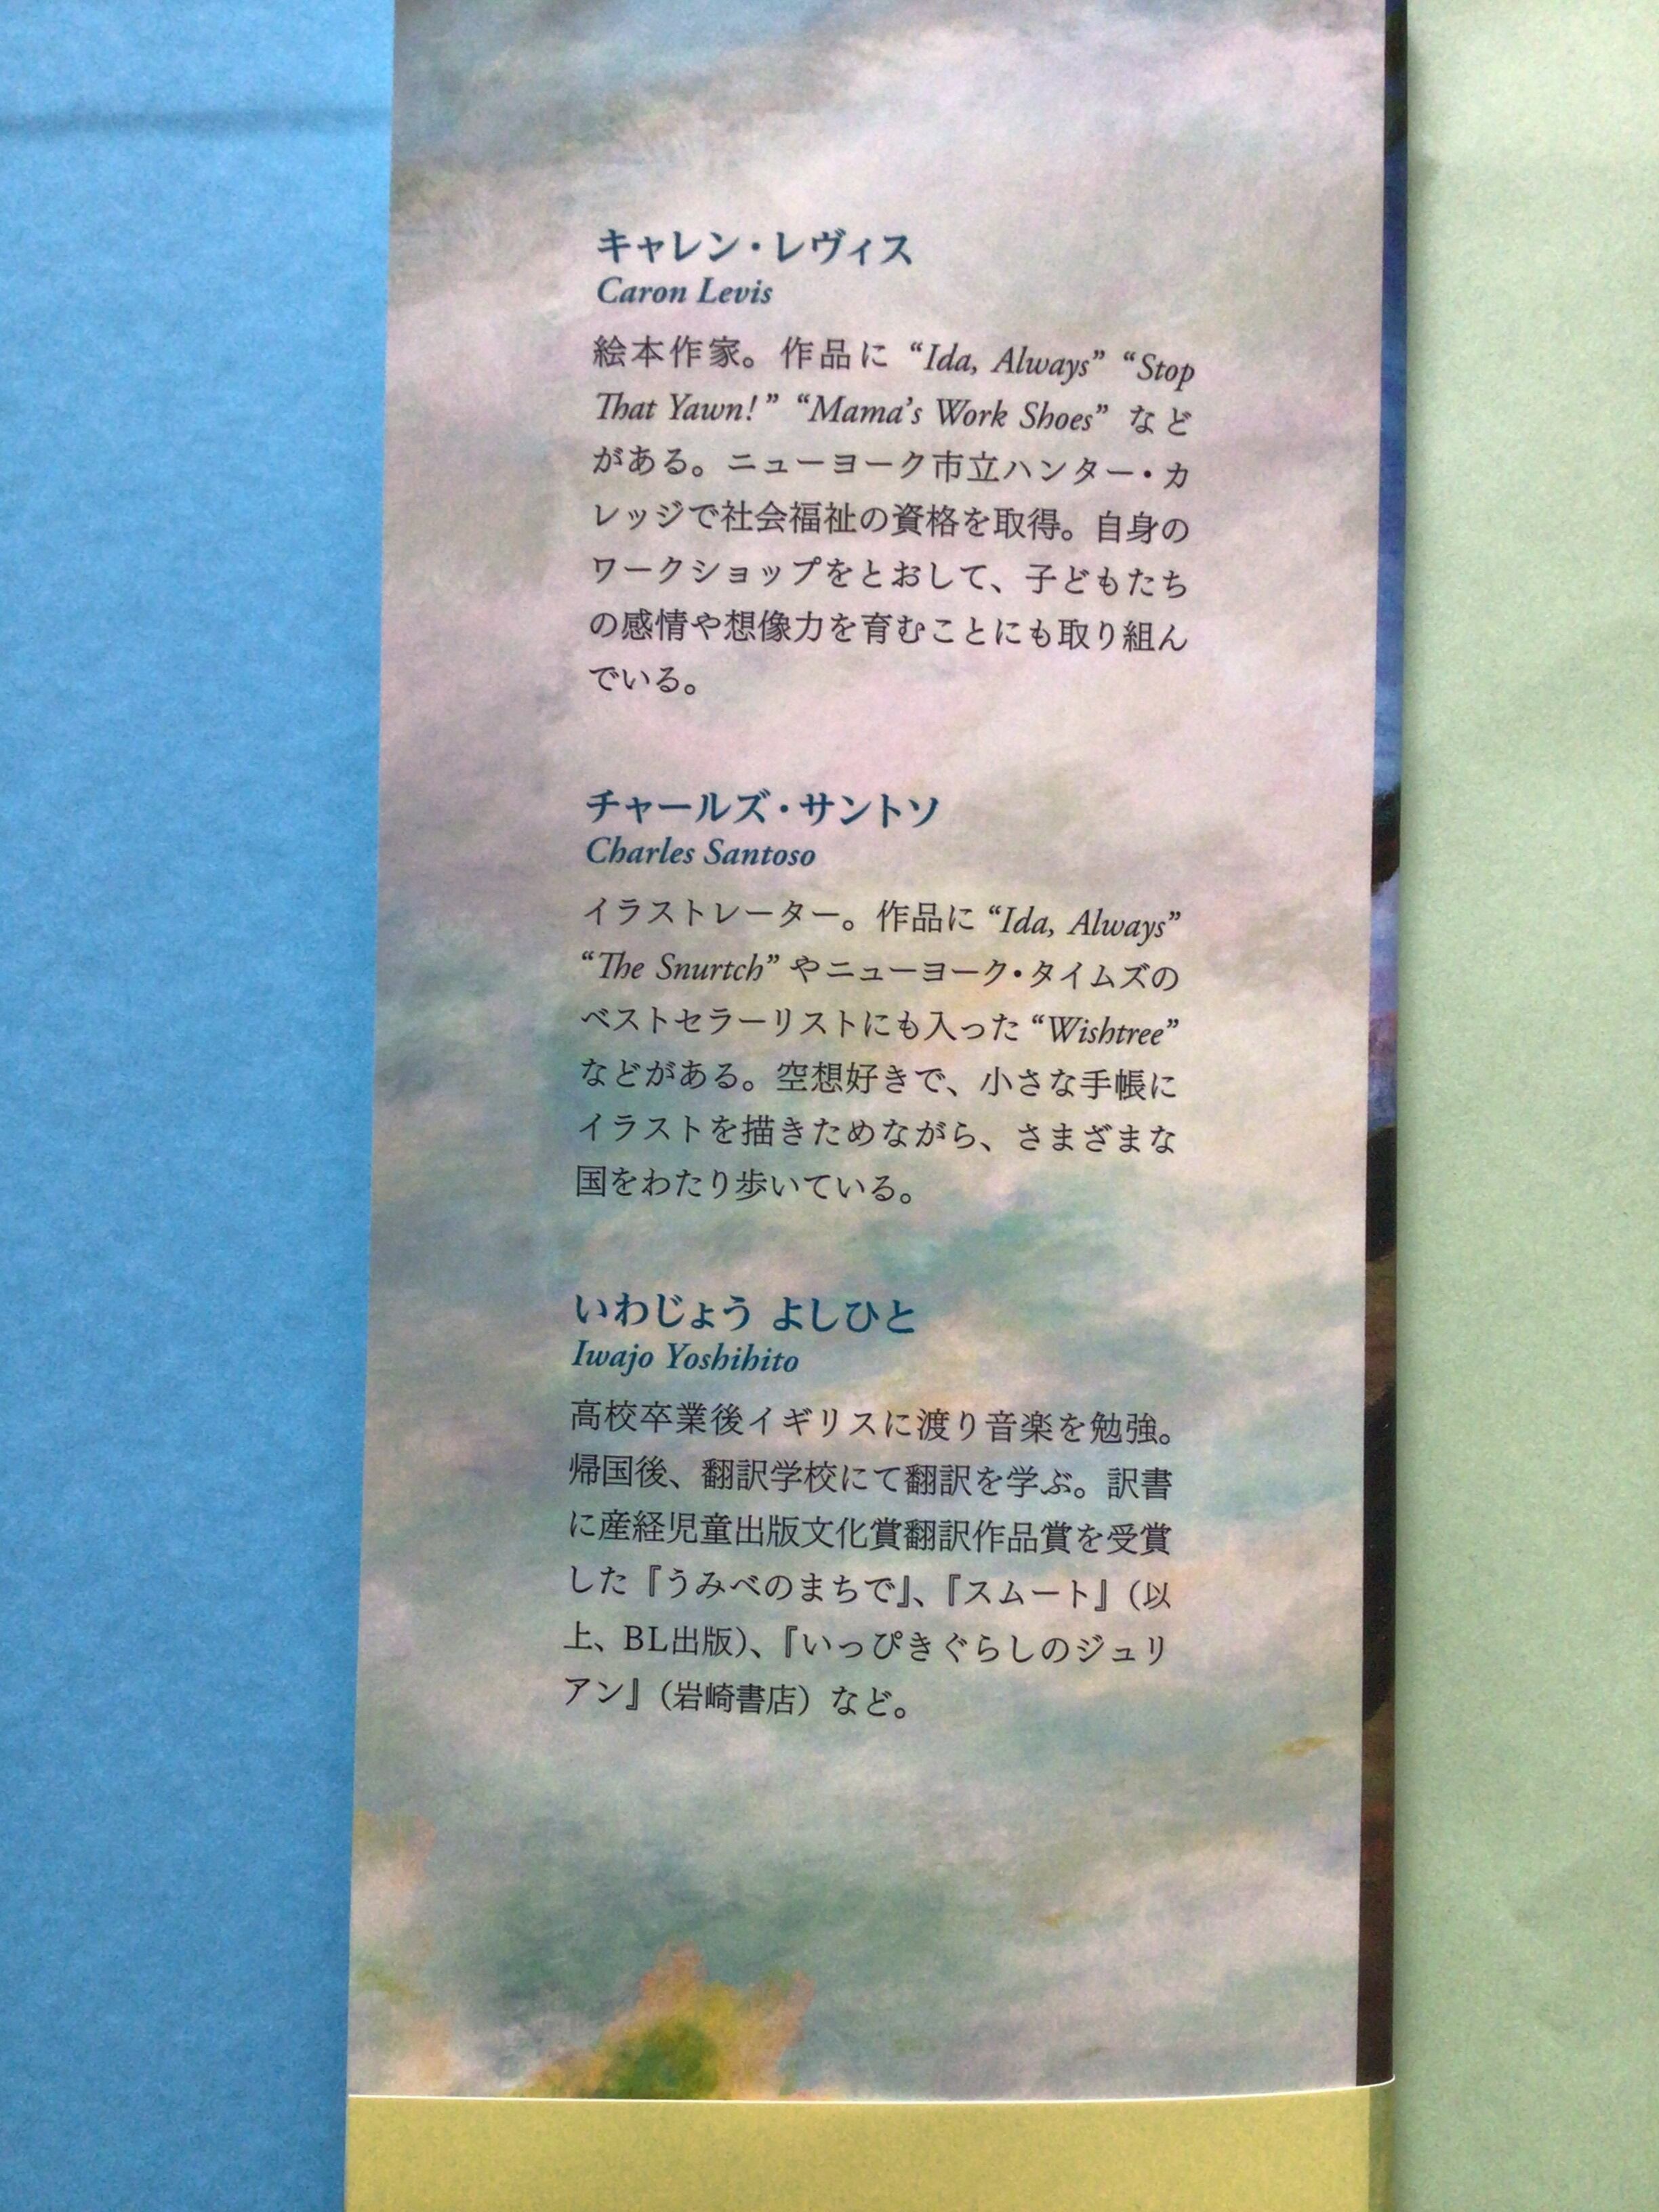 キャレン・レヴィス
Caron Levis
絵本作家。作品に “Ida, Always” “Stop
That Yawn!” “Mama’s Work Shoes” など
がある。ニューヨーク市立ハンター・カ
レッジで社会福祉の資格を取得。自身の
ワークショップをとおして、子どもたち
の感情や想像力を育むことにも取り組ん
でいる。
チャールズ・サントソ
Charles Santoso
イラストレーター。作品に “Ida, Always”
“The Snurtch” やニューヨーク・タイムズの
ベストセラーリストにも入った “Wishtree”
などがある。空想好きで、小さな手帳に
イラストを描きためながら、さまざまな
国をわたり歩いている。
いわじょう よしひと
Iwajo Yoshihito
高校卒業後イギリスに渡り音楽を勉強。
帰国後、翻訳学校にて翻訳を学ぶ。訳書
に産経児童出版文化賞翻訳作品賞を受賞
した『うみべのまちで』、『スムート』（以
上、BL出版）、『いっぴきぐらしのジュリ
アン』（岩崎書店）など。